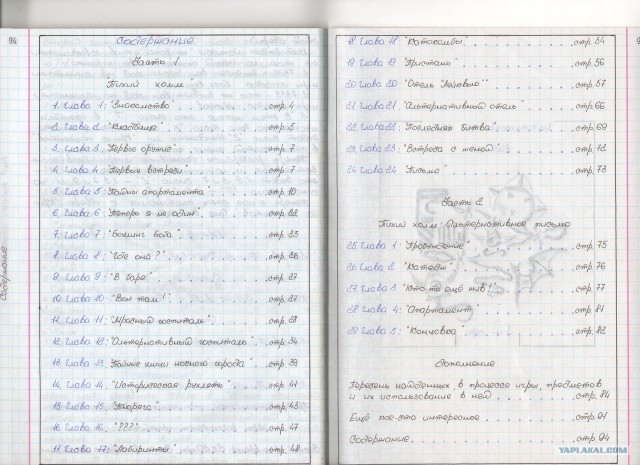 94
Содержание
Часть 1
"Тихий холм"
1. Глава 1: "Знакомство" стр. 4
2. Глава 2: "Кладбище" стр. 5
3. Глава 3. "Первое оружие" стр. 7
4. Глава 4. "Первые встречи" стр. 7
5. Глава 5 "Тайны апартамента" стр. 10
6. Глава 6: "Теперь я не один" стр. 22
7. Глава 7: "Боулинг Боба" стр. 25
8. Глава 8: "Где она?" стр. 26
9. Глава 9: "В баре" стр. 27
10. Глава 10: "Вон там!" стр. 27
11. Глава 11: "Мрачный госпиталь" стр. 28
12. Глава 12: "Альтернативный госпиталь" стр. 34
13. Глава 13. ночного города" стр. 39
14. Глава 14. "Историческая" стр. 41
15. Глава 15. стр. 43
16. Глава 16. "????" стр. 47
17. Глава 17: "Лабиринты" стр. 48
Содержание
18 Глава 18: "Катакомбы" стр. 54
19 Глава 19 "Пристань" стр. 56
20 Глава 20 "Отель "Лейквью"" стр. 57
21 Глава 21. "Альтернативный отель" стр. 66
22 Глава 22: "Последняя битва" стр. 69
23 Глава 23: "Встреча с женой" стр. 72
24 Глава 24 "Письмо" стр. 73
Часть 2
Тихий холм: Альтернативное письмо
25 Глава 1 стр. 75
26 Глава 2 стр. 76
27 Глава 3 "Кто-то ещё жив!" стр. 77
28 Глава 4: "Апартамент" стр. 81
29 Глава 5: "Концовка" стр. 82
Дополнение
Перечень найденных в процессе игры, предметов
и их использование в ней стр. 84
Ещё кое-что интересное стр. 91
Содержание стр. 94
YAPLAKAL.COM